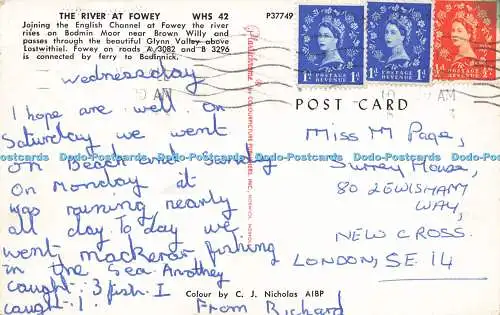 THE RIVER AT FOWEY WHS 42
Joining the English Channel at Fowey the river
rises on Bodmin Moor near Brown Willy and
passes through the beautiful Glynn Valley above
Lostwithiel. Fowey on roads A 3082 and B 3296
is connected by ferry to Bodinnick.
P37749
POSTAGE REVENUE
1d
POSTAGE REVENUE
1d
POSTAGE REVENUE
AM
AM
POST CARD
wednesday
I hope are well on
Saturday we went
on Beach and Sunday
On Monday it
was raining nearly
all day. To day we
went mackeral fishing
in the Sea. Anothey
caught 3 fish. I
caught 1.
From Richard
Miss M Page,
Surrey House,
80 LEWISHAM
WAY,
NEW CROSS.
LONDON, SE 14
Colour by C. J. Nicholas AIBP
Dodo-Postcards Dodo-Postcards Dodo-Postcards Dodo-Postcards